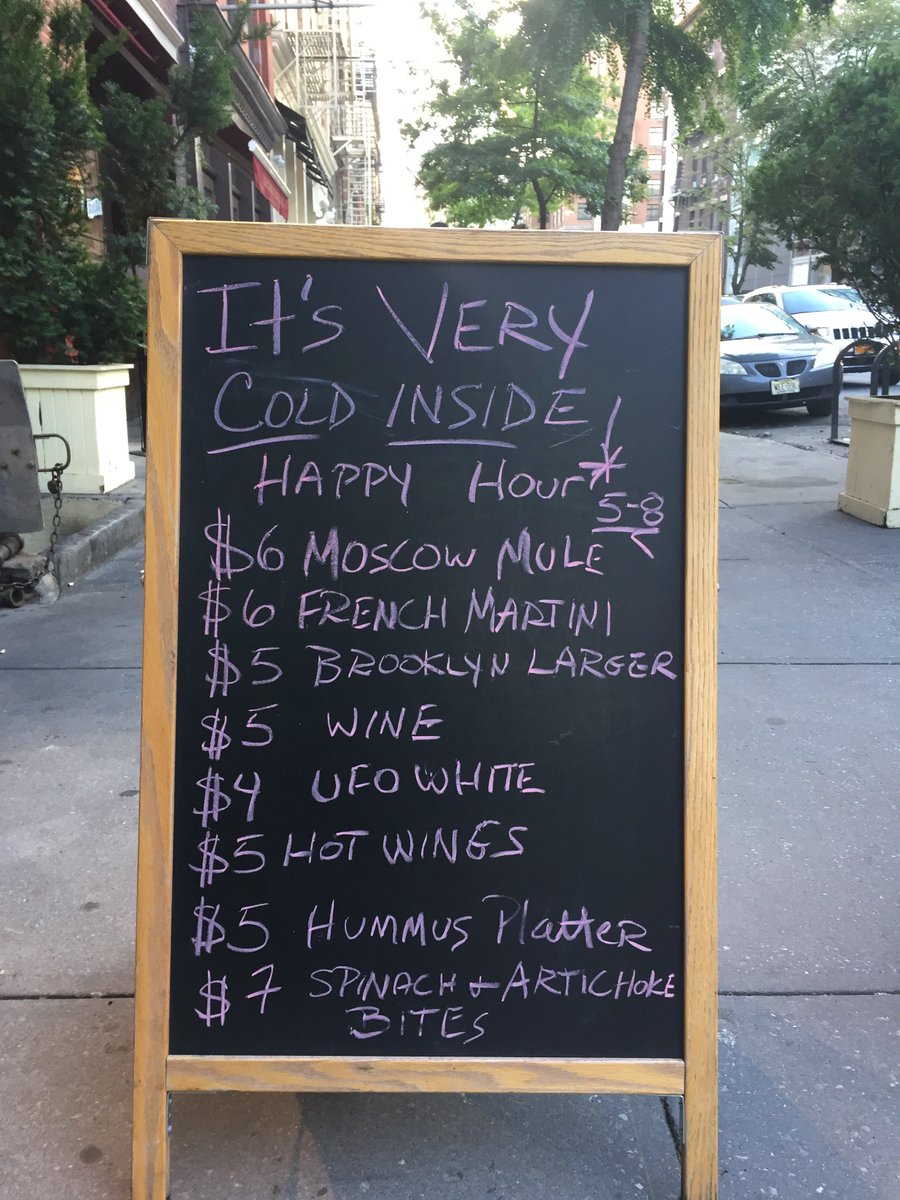 It's VERY
COLD INSIDE
HAPPY Hour*
5-8
$6 MOSCOW MULE
$6 FRENCH MARTINI
$5 BROOKLYN LARGER
$5 WINE
$4 UFO WHITE
$5 HOT WINGS
$5 HUMMUS Platter
$7 SPINACH & ARTICHOKE
BITES